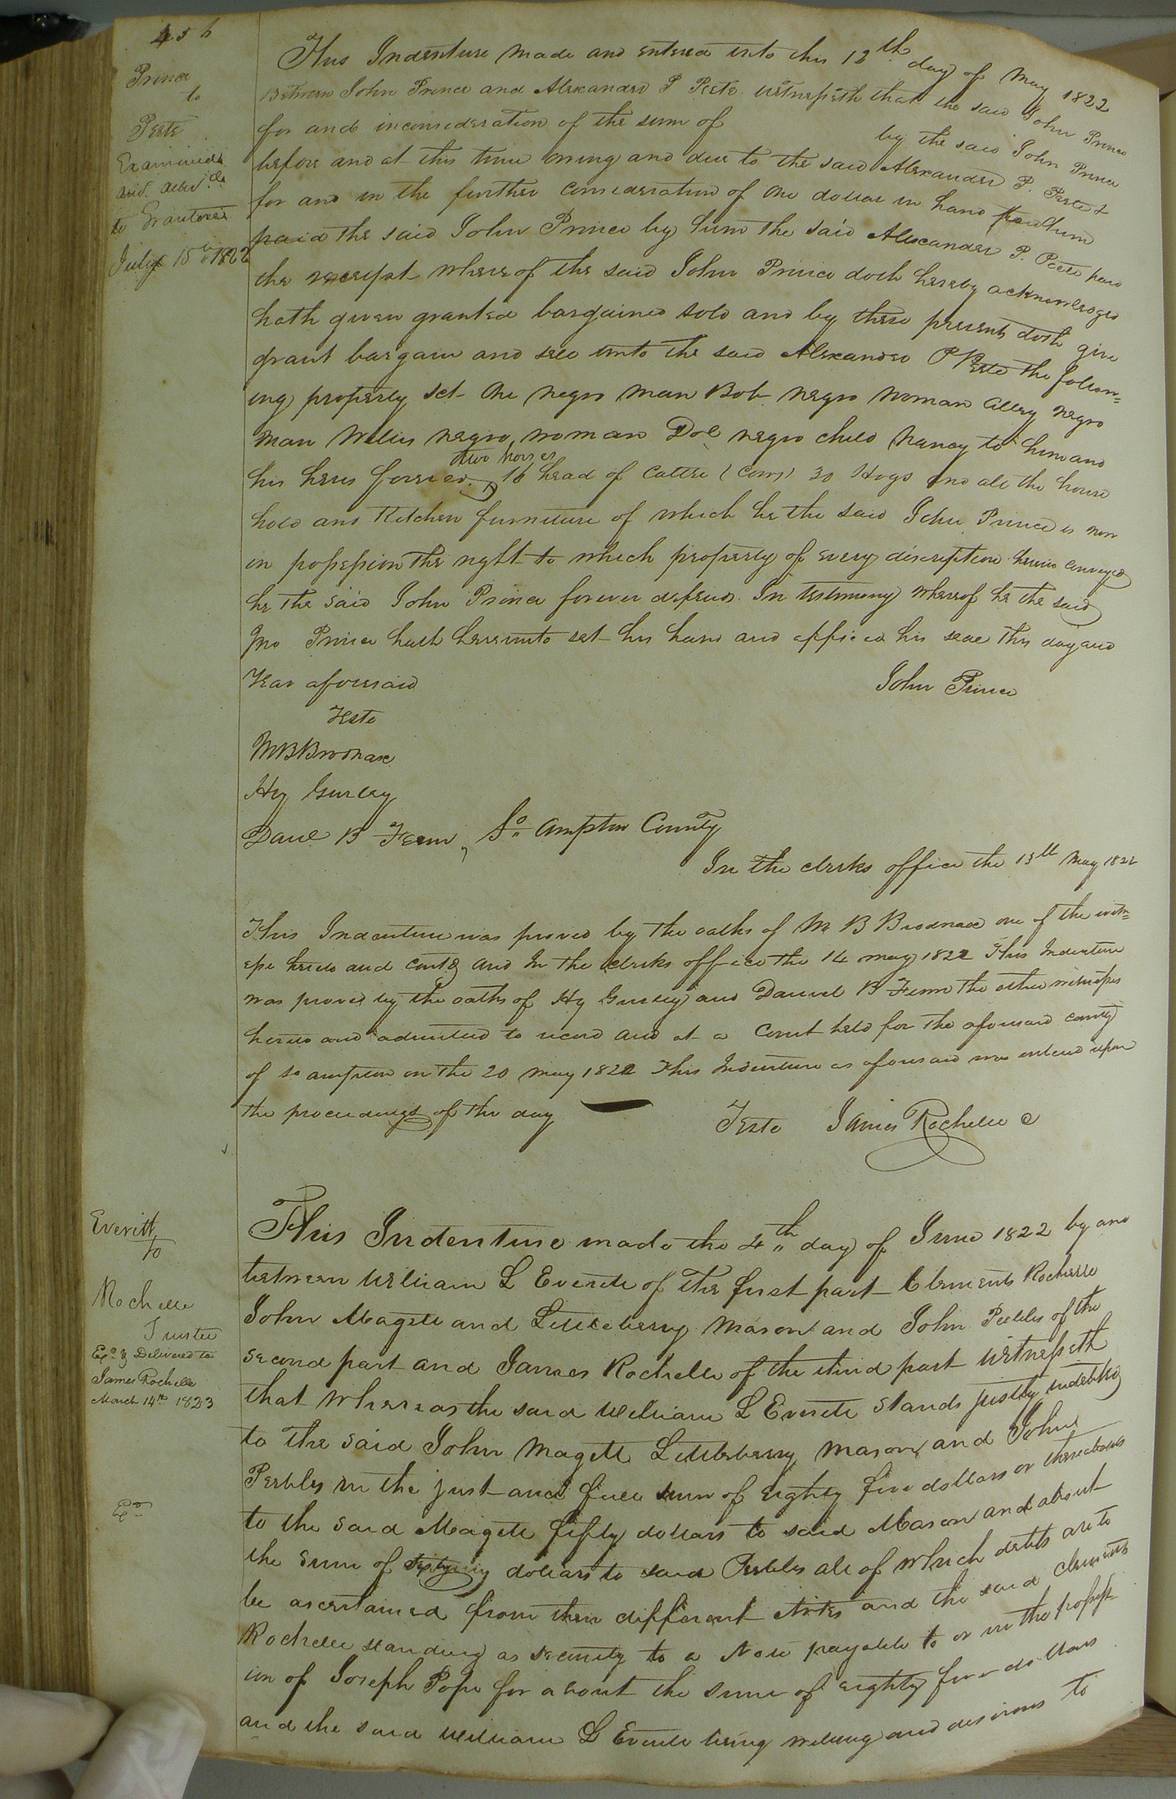 456
Prince
to
Peete
Examined
and deliv'd
to Grantee
July 15th 1822
This Indenture made and entered into this 13th day of May 1822
Between John Prince and Alexander P Peete witnesseth that the said John Prince
for and inconsideration of the sum of by the said John Prince
before and at this time oweing and due to the said Alexander P. Peete &
for and in the further consideration of one dollar in hand
paid the said John Prince by him the said Alexander P. Peete paid
the receipt whereof the said John Prince doth hereby acknowledges
hath given granted bargained sold and by these presents doth give
grant bargain and sell unto the said Alexander P Peete the follow=
ing property set one negro man Bob negro woman Alley negro
man Willis negro woman Dol negro child Nancy to him and
his heirs forever. two horses 16 head of Cattle (Cows) 30 Hogs and all the house
hold and Kitchen furniture of which he the said John Prince is now
in possession the right to which property of every discription herein conveyed
he the said John Prince forever defend. In testimony whereof he the said
Jno Prince hath hereunto set his hand and affixed his seal this day and
Year aforesaid
John Prince
Teste
M B Brodnax
Hy Gurley
Danl B Fenn, So.. ampton County
In the clerks office the 13th May 1822
This Indenture was proved by the oaths of M B Brodnax one of the witn=
ess hereto and Cont'd and In the clerks office the 14 may 1822 This Indenture
was proved by the oaths of Hy Gurley and Daniel B Fenn the other witnesses
hereto and admitted to record and at a Court held for the aforesaid county
of So ampton on the 20 may 1822 This Indenture as aforesaid was entered upon
the proceedings of the day
Teste James Rochelle C
Everitt
to
Rochelle
Trustee
Exd & Delivered to
James Rochelle
March 14th 1823
Exd
This Indenture made the 4th day of June 1822 by and
between William L Everitt of the first part Clements Rochelle
John Magett and Littleberry Mason and John Peebles of the
second part and James Rochelle of the third part Witnesseth
that whereas the said William L Everitt stands justly indebted
to the said John Magett Littleberry Mason and John
Peebles in the just and full sum of Eighty five dollars or thereabouts
to the said Magett fifty dollars to said Mason and about
the sum of dollars to said Peebles all of which debts are to
be ascertained from their different Notes and the said Clements
Rochelle standing as security to a Note payable to or in the possess
ion of Joseph Pope for about the sum of eighty five dollars
and the said William L Everitt being willing and desirous to